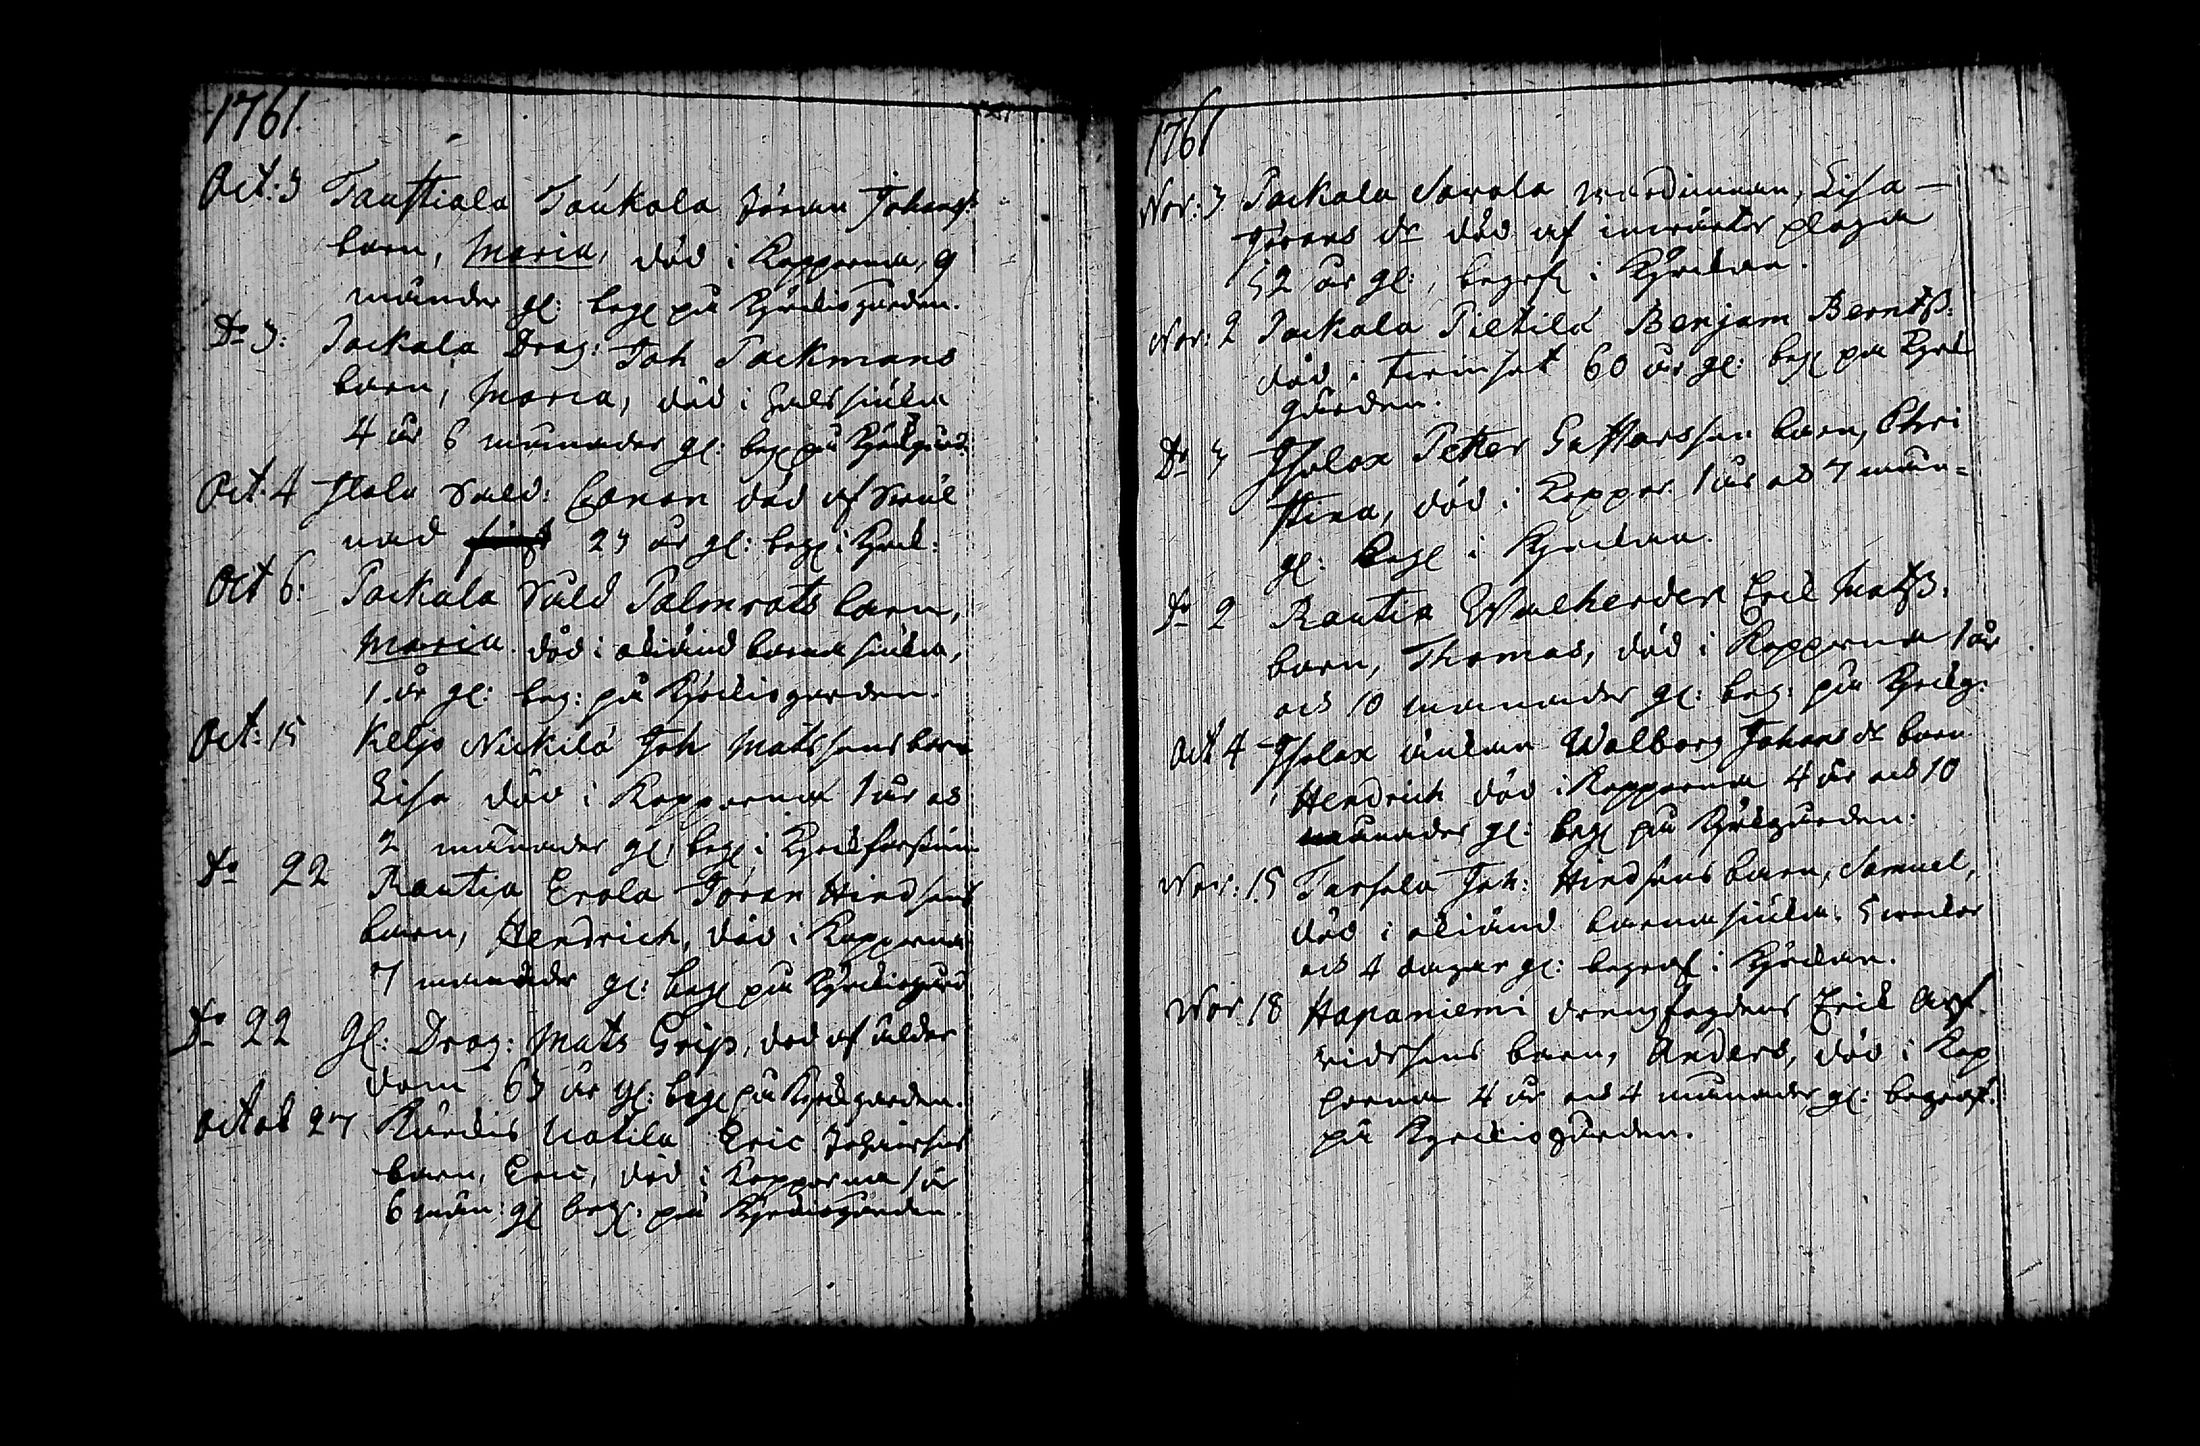 1761.
Oct: 3 Taustiala Jaukala Jöran Johans:
barn, Maria, död i Kopporna, 9
månder gl: begr på Kyrkiogården.
Do 3: Packala Drag: Joh Packmans
barn, Maria, död i halssiuka
4 år 6 månader gl: begr på Kyrkogård.
Oct. 4 Itala Sald: Coron död af
23 år gl: begr i Kyrck:
Oct 6: Packala Sald Palmrots barn,
Maria. död i okiänd barnasiuka,
1. år gl: beg: på Kyrckiogården.
Oct: 15 Keljo Nickilä Joh Matssons barn
Lisa död i Kopporna 1 år och
2 månader gl. begr i
Do 22 Rautia Erola Jöran Hindsons
barn, Hendrich, död i Kopporna
7 månader gl: begr på Kyrckiogård
Do 22 Gl: Drag: Mats Grip, död af ålder
dom 63 år gl: begr på Kyrkgården.
Octob 27 Eric Johansons
barn, Eric, död i Kopporna 1 år
6 mån: gl begr: på Kyrckiogården.
1761
Nov: 3 Packala Savola Lisa
Jörans dr död af invärtes plåga
52 år gl:, begraf i Kyrckan.
Nov: 2 Packala Pietilä Benjam Berntss:
död i 60 år gl: begr på Kyrk
gården.
Do 3 Yholax Petter Gustafsson barn, Chri
stina, död i Koppor. 1 år och 7 mån=
gl: Begr i Kyrckan.
Do 2 Rautia Walherden Eric Matss:
barn, Thomas, död i Kopporna 1 år
och 10 månader gl: beg: på Kyrckg:
Oct 4 Yholax änkan Walborg Johans dr barn
Hendrich död i Kopporna 4 år och 10
månader gl: begr på Kyrkgården.
Nov: 15 Tarhala Joh: Hindsons barn, Samuel,
död i okiänd barnasiuka. 5 weckor
och 4 dagar gl: begraf i Kyrckan.
Nov. 18 Hapaniemi drengfogdens Erik Arf
vidssons barn, Anders, död i Kop
porna 4 år och 4 månader gl: begraf.
på Kyrckiogården.